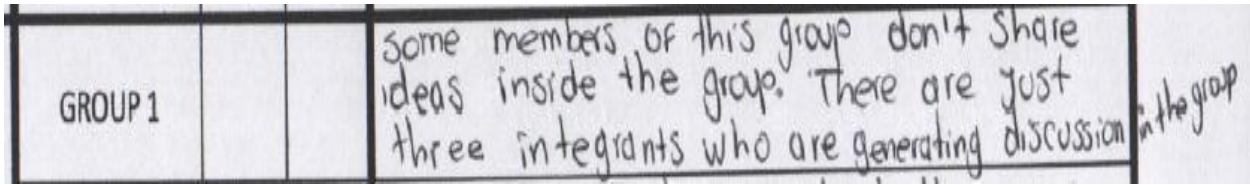 GROUP 1
some members of this group don't share
ideas inside the group. There are just
three integrants who are generating discussion
in the group